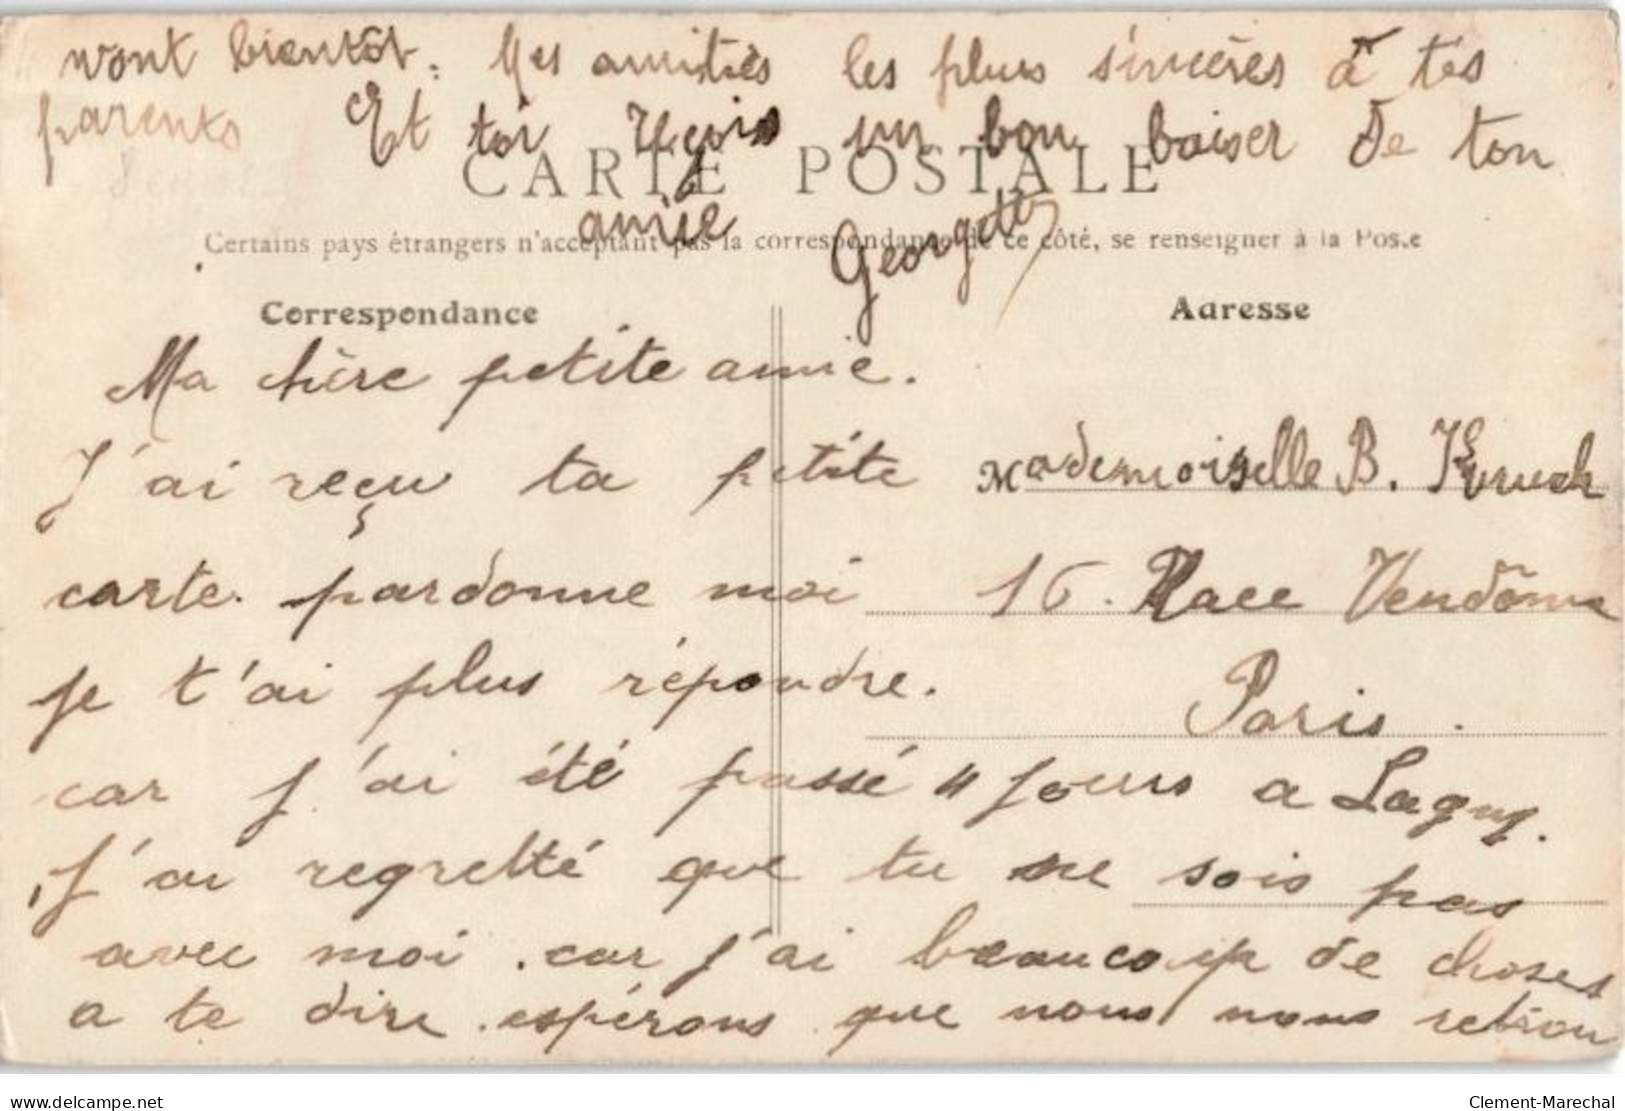 vont bientôt. Mes amitiés les plus sincères à tes
parents Et toi reçois un bon baiser de ton
CARTE POSTALE
amie Georgette
Certains pays étrangers n'acceptant pas la correspondance de ce côté, se renseigner à la Poste
Correspondance
Adresse
Ma chère petite amie.
J'ai reçu ta petite
Mademoiselle B.
carte. pardonne moi
16. Place Vendôme
je t'ai plus répondre.
Paris.
car j'ai été passé 4 jours a Lagny.
J'ai regretté que tu ne sois pas
avec moi. car j'ai beaucoup de choses
a te dire. espérons que nous nous retrou
delcampe.net
Clement-Marechal